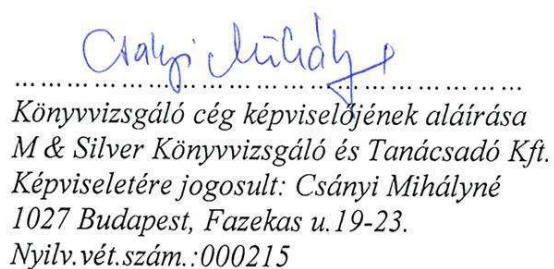 Csányi Mihályné
Könyvvizsgáló cég képviselőjének aláírása
M & Silver Könyvvizsgáló és Tanácsadó Kft.
Képviseletére jogosult: Csányi Mihályné
1027 Budapest, Fazekas u.19-23.
Nyilv.vét.szám.:000215